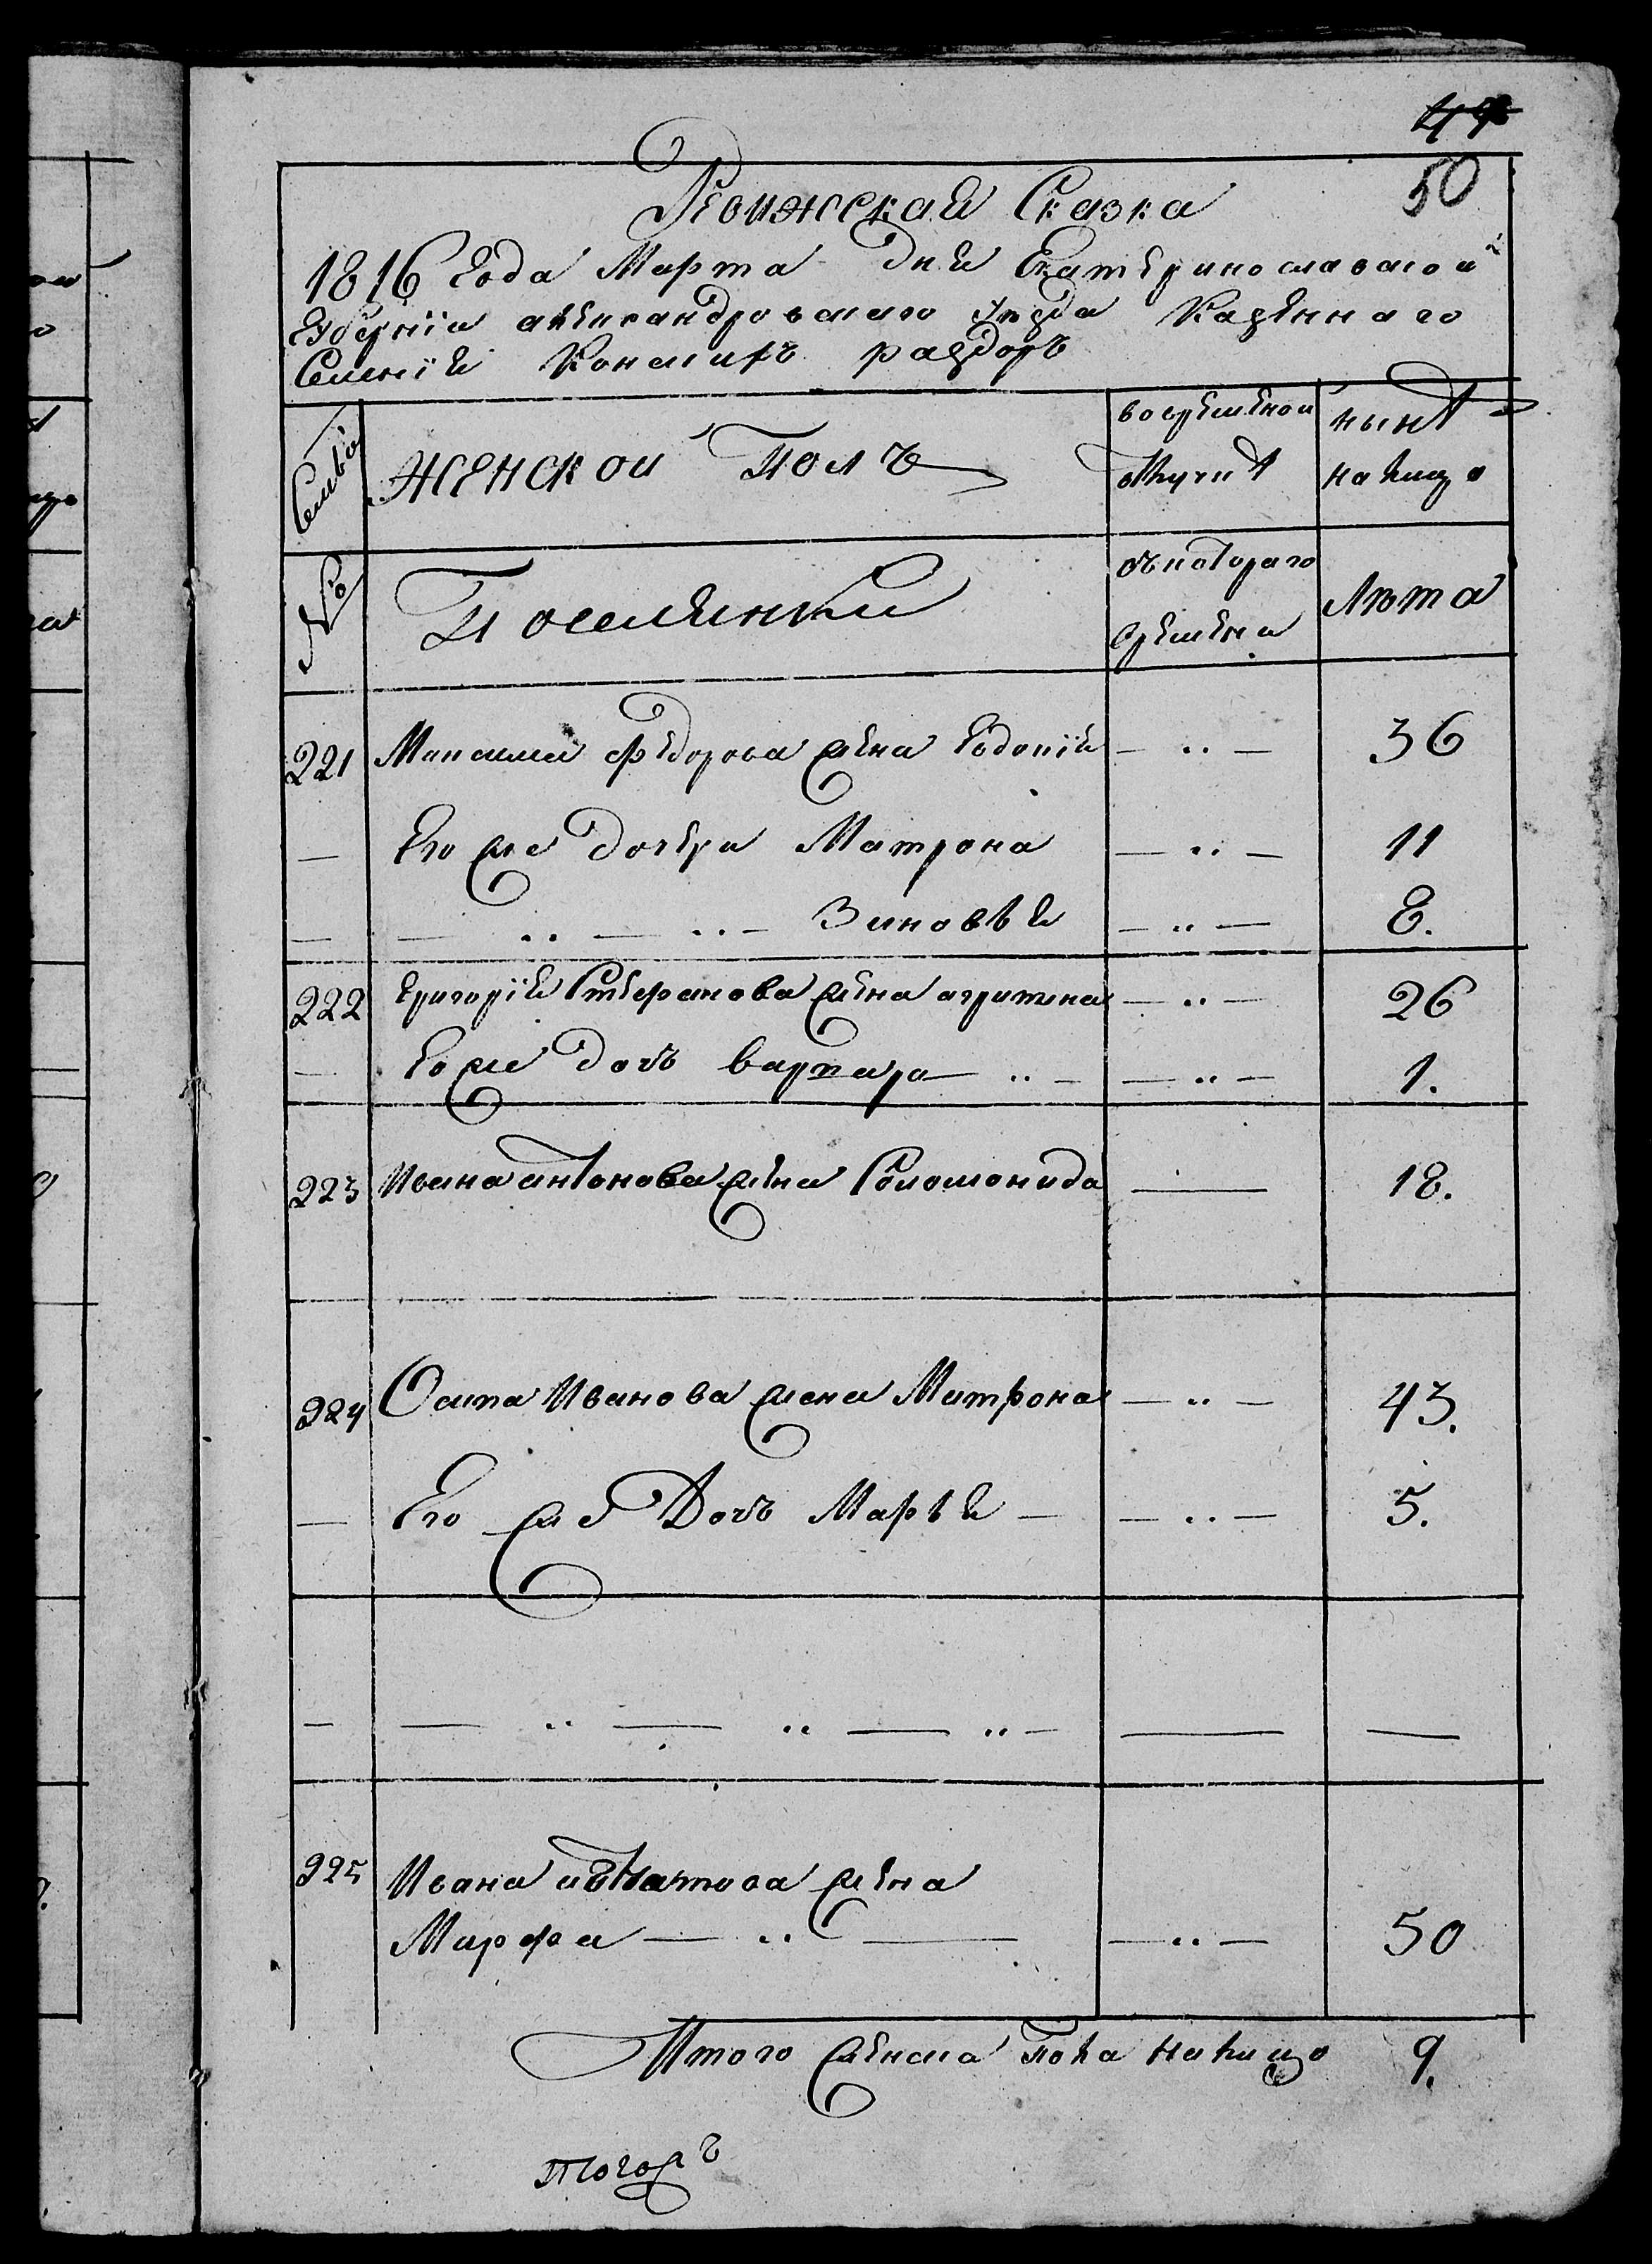 50
Ревижская Сказка
1816 года Марта дня Екатеринославской
Губернии александровскаго уезда Казеннаго
Селения Конских раздоръ
Семьи
женской полъ
во временной отлучке
ныне на лицо
№
Поселянки
съ котораго времени
Лета
221 Максима Федорова жена Евдокия — .. — 36
— Его же дочери Матрона — .. — 11
— — .. — .. — Зиновья — .. — 8.
222 Григория Стефанова жена агрипина — .. — 26
— Его же дочь варвара — .. — — .. — 1.
223 Ивана антонова жена Соломонида — 18.
224 Осипа Иванова жена Матрона — .. — 43.
— Его же Дочь Марья — — .. — 5.
— — .. — .. — .. — — —
225 Ивана игнатова жена
Марфа — .. — — .. — 50
Итого женска пола на лицо 9.